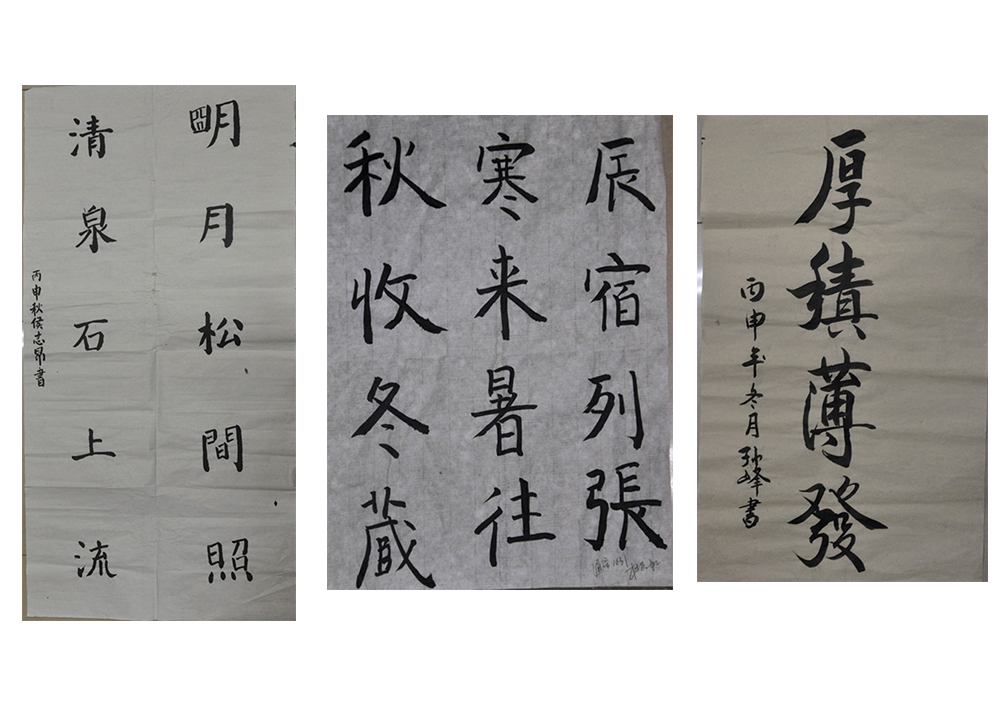 朙月松間照
清泉石上流
丙申秋侯志昂書
辰宿列張
寒来暑往
秋收冬藏
厚積薄發
丙申年冬月孙峰書